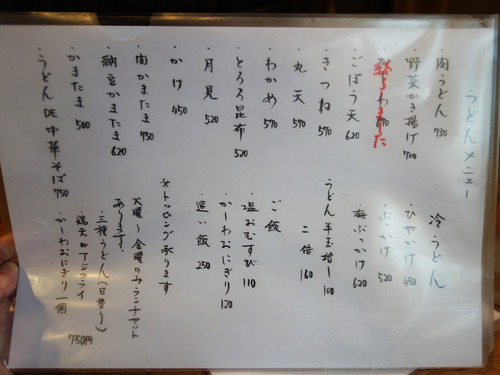 うどんメニュー
・肉うどん 730
・野菜かき揚げ 700
終りました
・ごぼう天 620
・きつね 570
・丸天 570
・わかめ 570
・とろろ昆布 520
・月見 520
・かけ 450
・肉かまたま 730
・納豆かまたま 620
・かまたま 500
・うどんDE中華そば 750
冷うどん
・ひやかけ 450
・ぶっかけ 520
・梅ぶっかけ 620
・うどん半玉増し 100
二倍 160
ご飯
・塩おむすび 110
・かしわおにぎり 120
・追い飯 250
※トッピング承ります
火曜〜金曜のみランチセット
あります。
・三種うどん(日替り)
・鶏天orアジフライ
・かしわおにぎり一個
750円